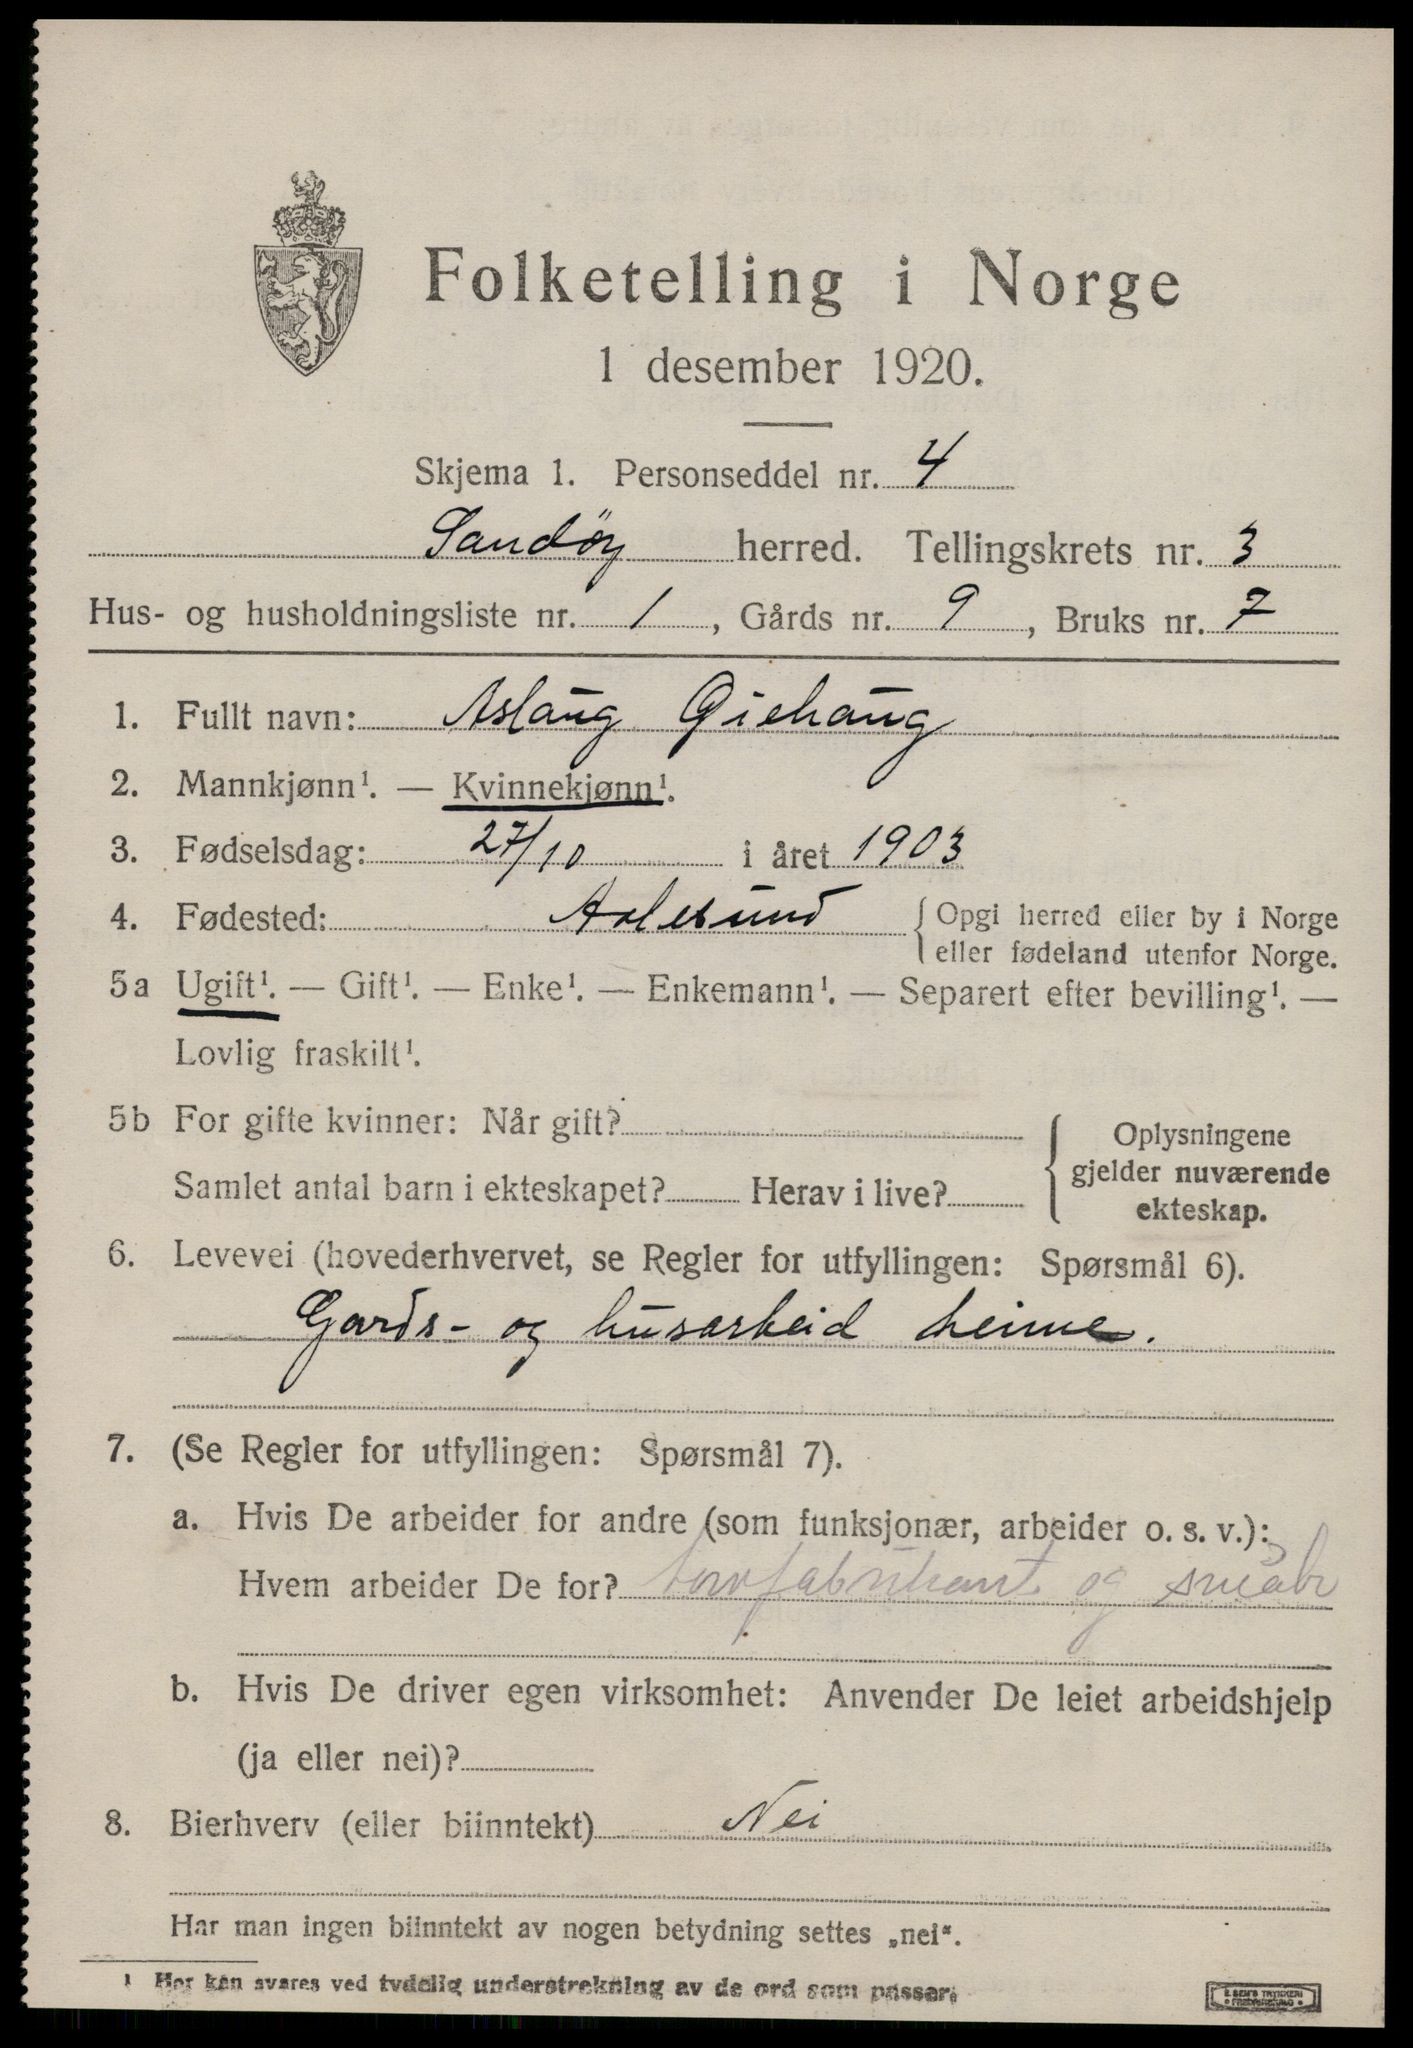 Folketelling i Norge
1 desember 1920.
Skjema 1. Personseddel nr. 4
Sandöy herred. Tellingskrets nr. 3
Hus- og husholdningsliste nr. 1, Gårds nr. 9, Bruks nr. 7
1. Fullt navn: Aslaug Giehaug
2. Mannkjønn¹. — Kvinnekjønn¹.
3. Fødselsdag: 27/10 i året 1903
4. Fødested: Aalesund { Opgi herred eller by i Norge
eller fødeland utenfor Norge.
5a Ugift¹. — Gift¹. — Enke¹. — Enkemann¹. — Separert efter bevilling¹. —
Lovlig fraskilt¹.
5b For gifte kvinner: Når gift?
Samlet antal barn i ekteskapet? Herav i live?
Oplysningene
gjelder nuværende
ekteskap.
6. Levevei (hovederhvervet, se Regler for utfyllingen: Spørsmål 6).
Gards- og husarbeid heime.
7. (Se Regler for utfyllingen: Spørsmål 7).
a. Hvis De arbeider for andre (som funksjonær, arbeider o. s. v.):
Hvem arbeider De for? fabrikant og småbr
b. Hvis De driver egen virksomhet: Anvender De leiet arbeidshjelp
(ja eller nei)?
8. Bierhverv (eller biinntekt) Nei
Har man ingen biinntekt av nogen betydning settes „nei“.
¹ Her kan svares ved tydelig understrekning av de ord som passer.